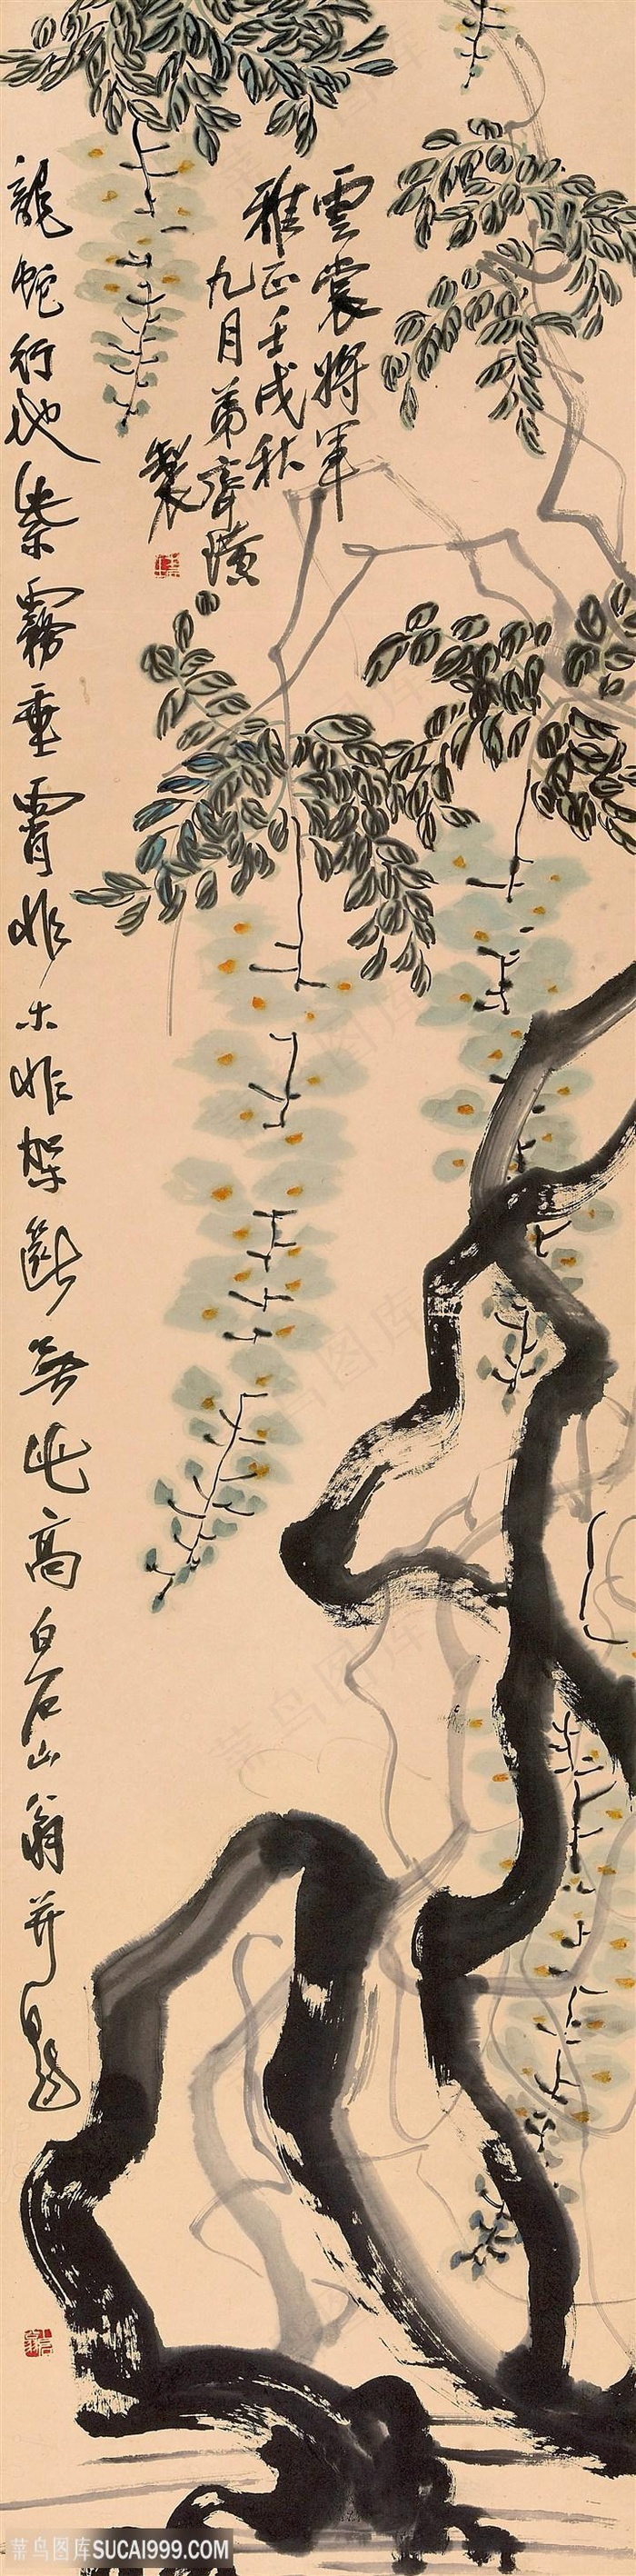 雲裳將軍
雅正壬戌秋
九月弟齊璜
製
龍蛇行地紫霧垂霄非木非架斷無此高白石山翁并題
菜鸟图库SUCAI999.COM